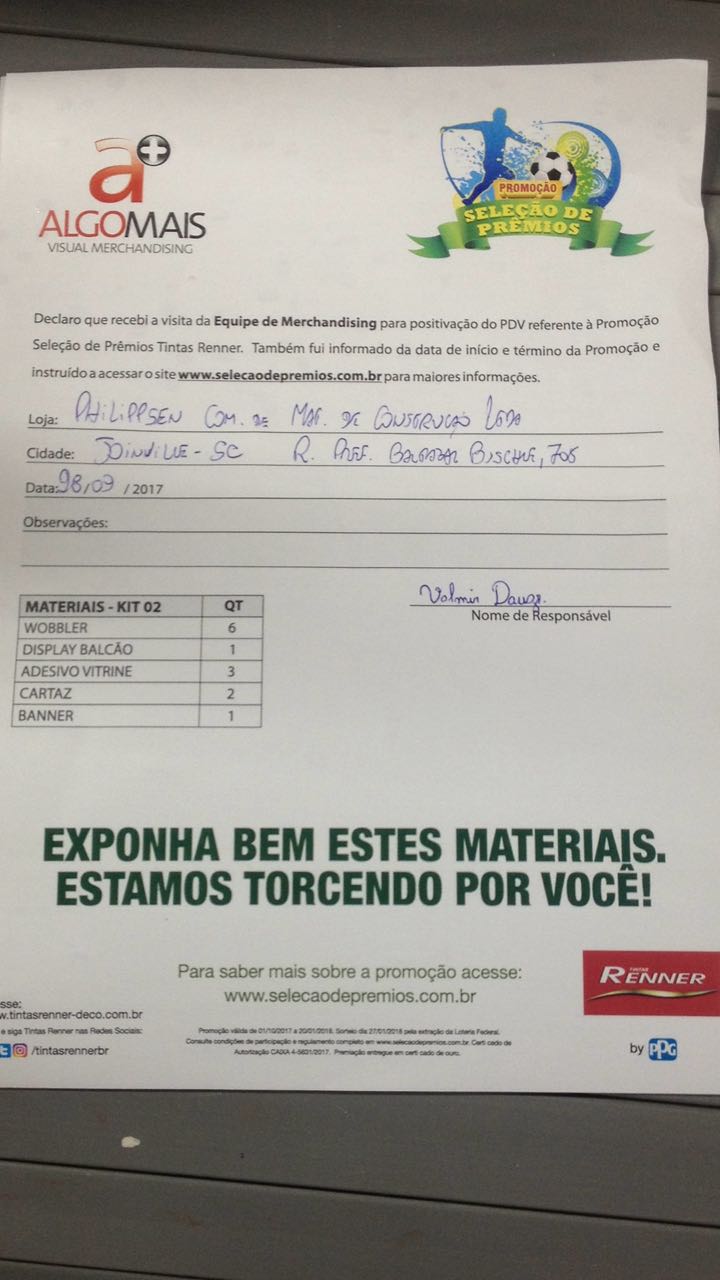 a+
ALGOMAIS
VISUAL MERCHANDISING
PROMOÇÃO
SELEÇÃO DE
PRÊMIOS
Declaro que recebi a visita da Equipe de Merchandising para positivação do PDV referente à Promoção
Seleção de Prêmios Tintas Renner. Também fui informado da data de início e término da Promoção e
instruído a acessar o site www.selecaodepremios.com.br para maiores informações.
Loja: PHILIPPSEN COM. DE MAT. DE CONSTRUÇÃO LTDA
Cidade: JOINVILLE - SC R. PREF. BALTAZAR
Data: /09 / 2017
Observações:
Valmir
Nome de Responsável
MATERIAIS - KIT 02 QT
WOBBLER 6
DISPLAY BALCÃO 1
ADESIVO VITRINE 3
CARTAZ 2
BANNER 1
EXPONHA BEM ESTES MATERIAIS.
ESTAMOS TORCENDO POR VOCÊ!
Para saber mais sobre a promoção acesse:
www.selecaodepremios.com.br
TINTAS
RENNER
by PPG
sse:
w.tintasrenner-deco.com.br
e siga Tintas Renner nas Redes Sociais:
/tintasrennerbr
Promoção válida de 01/10/2017 a 20/01/2018. Sorteio dia 27/01/2018 pela extração da Loteria Federal.
Consulte condições de participação e regulamento completo em www.selecaodepremios.com.br. Certi cado de
Autorização CAIXA 4-5631/2017. Premiação entregue em certi cado de ouro.